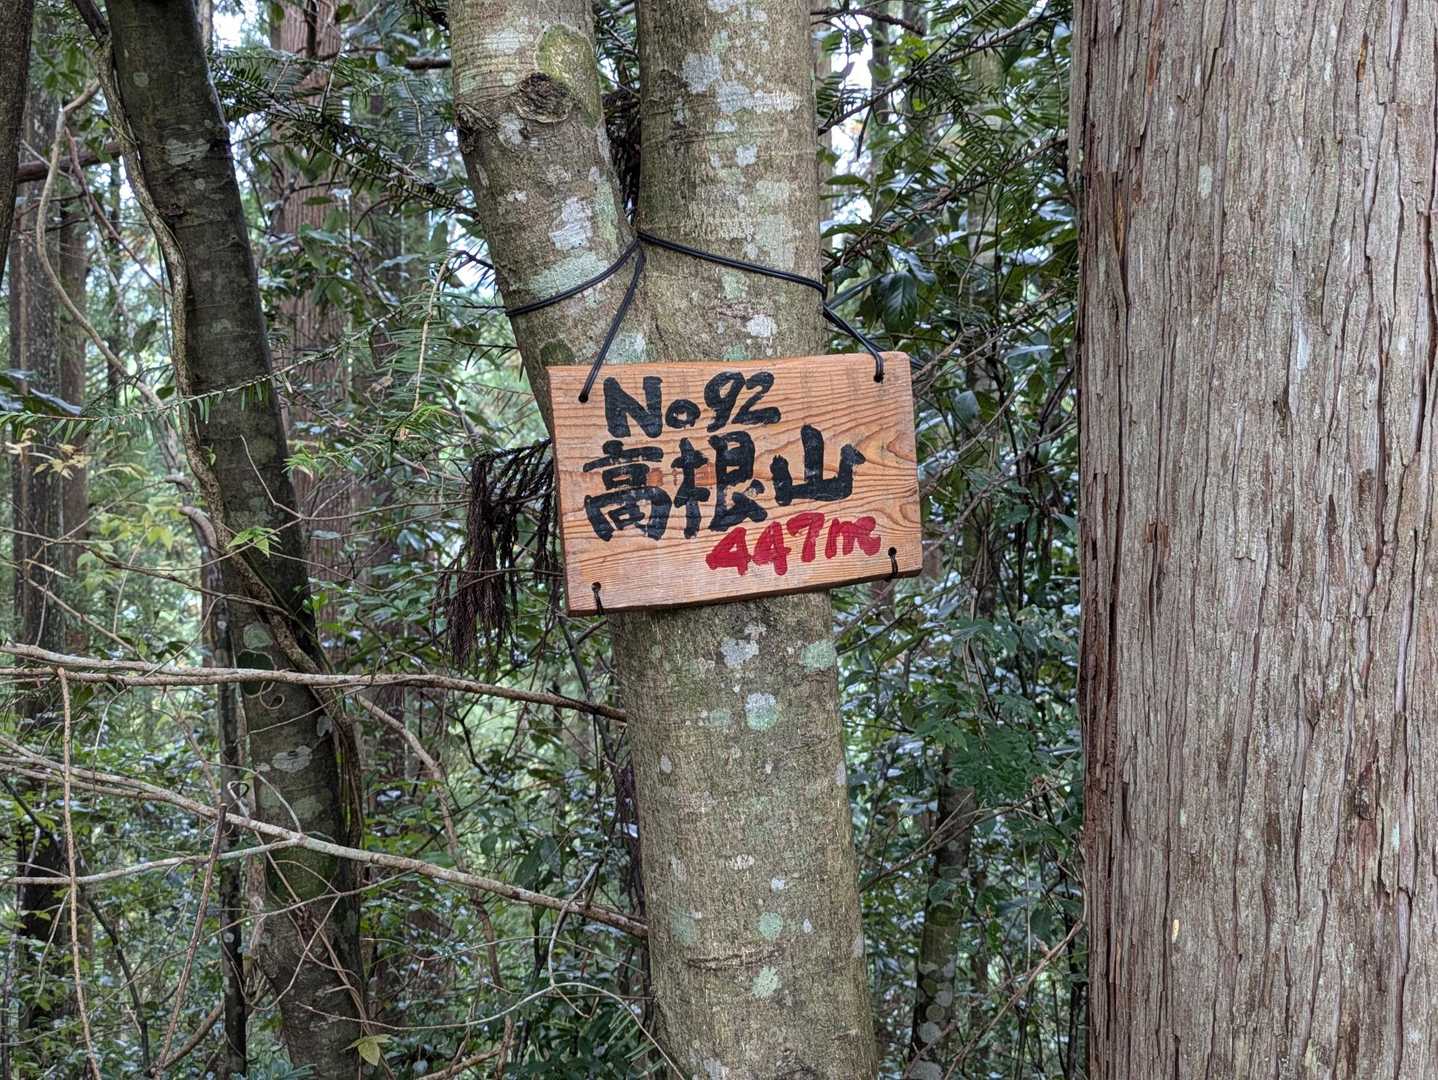 No92
高根山
447m